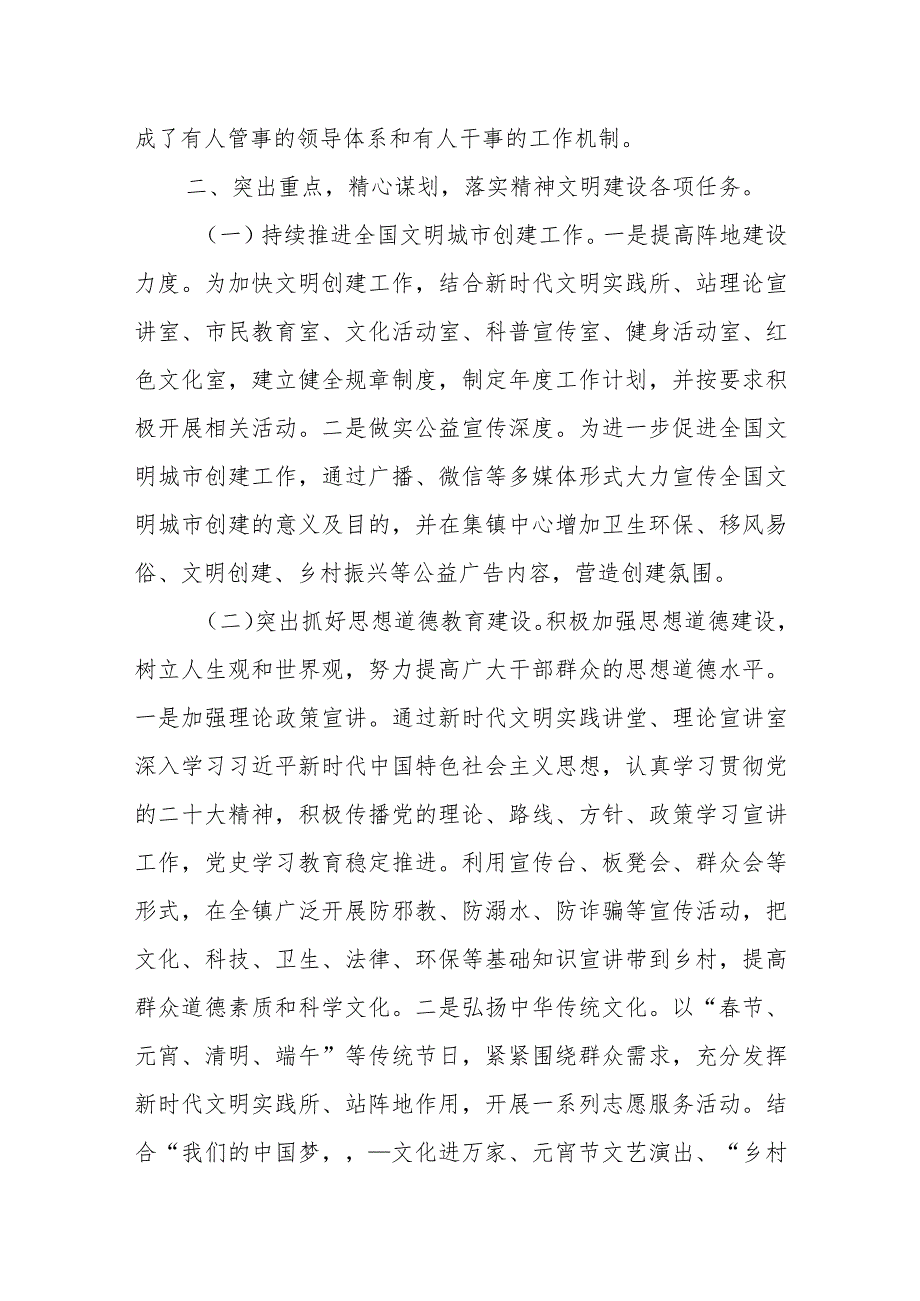 成了有人管事的领导体系和有人干事的工作机制。
二、突出重点，精心谋划，落实精神文明建设各项任务。
（一）持续推进全国文明城市创建工作。一是提高阵地建设
力度。为加快文明创建工作，结合新时代文明实践所、站理论宣
讲室、市民教育室、文化活动室、科普宣传室、健身活动室、红
色文化室，建立健全规章制度，制定年度工作计划，并按要求积
极开展相关活动。二是做实公益宣传深度。为进一步促进全国文
明城市创建工作，通过广播、微信等多媒体形式大力宣传全国文
明城市创建的意义及目的，并在集镇中心增加卫生环保、移风易
俗、文明创建、乡村振兴等公益广告内容，营造创建氛围。
（二）突出抓好思想道德教育建设。积极加强思想道德建设，
树立人生观和世界观，努力提高广大干部群众的思想道德水平。
一是加强理论政策宣讲。通过新时代文明实践讲堂、理论宣讲室
深入学习习近平新时代中国特色社会主义思想，认真学习贯彻党
的二十大精神，积极传播党的理论、路线、方针、政策学习宣讲
工作，党史学习教育稳定推进。利用宣传台、板凳会、群众会等
形式，在全镇广泛开展防邪教、防溺水、防诈骗等宣传活动，把
文化、科技、卫生、法律、环保等基础知识宣讲带到乡村，提高
群众道德素质和科学文化。二是弘扬中华传统文化。以“春节、
元宵、清明、端午”等传统节日，紧紧围绕群众需求，充分发挥
新时代文明实践所、站阵地作用，开展一系列志愿服务活动。结
合“我们的中国梦，，—文化进万家、元宵节文艺演出、“乡村